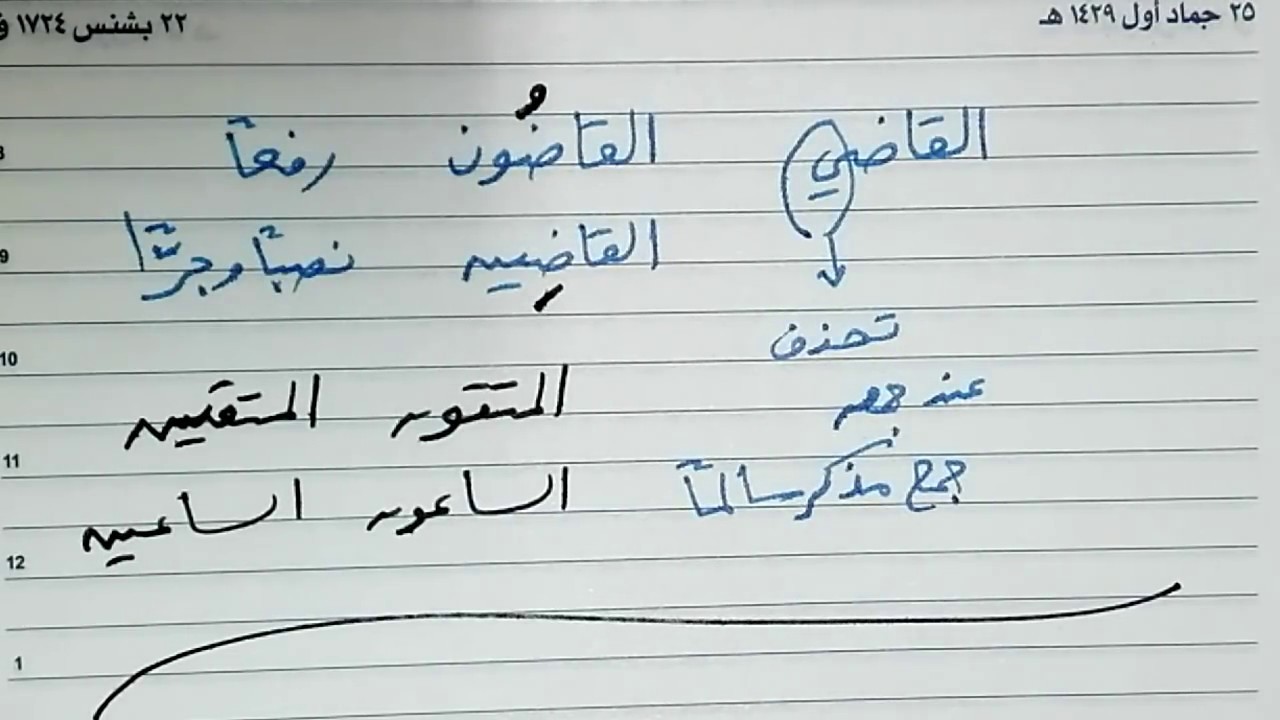 ٢٥ جماد أول ١٤٢٩ هـ ٢٢ بشنس ١٧٢٤ ق
القاضي القاضُون رفعاً
القاضِين نصباً وجرًّا
تحذف
عند جمعه
جمع مذكر سالماً
المتقون المتقين
الساعون الساعين
8
9
10
11
12
1